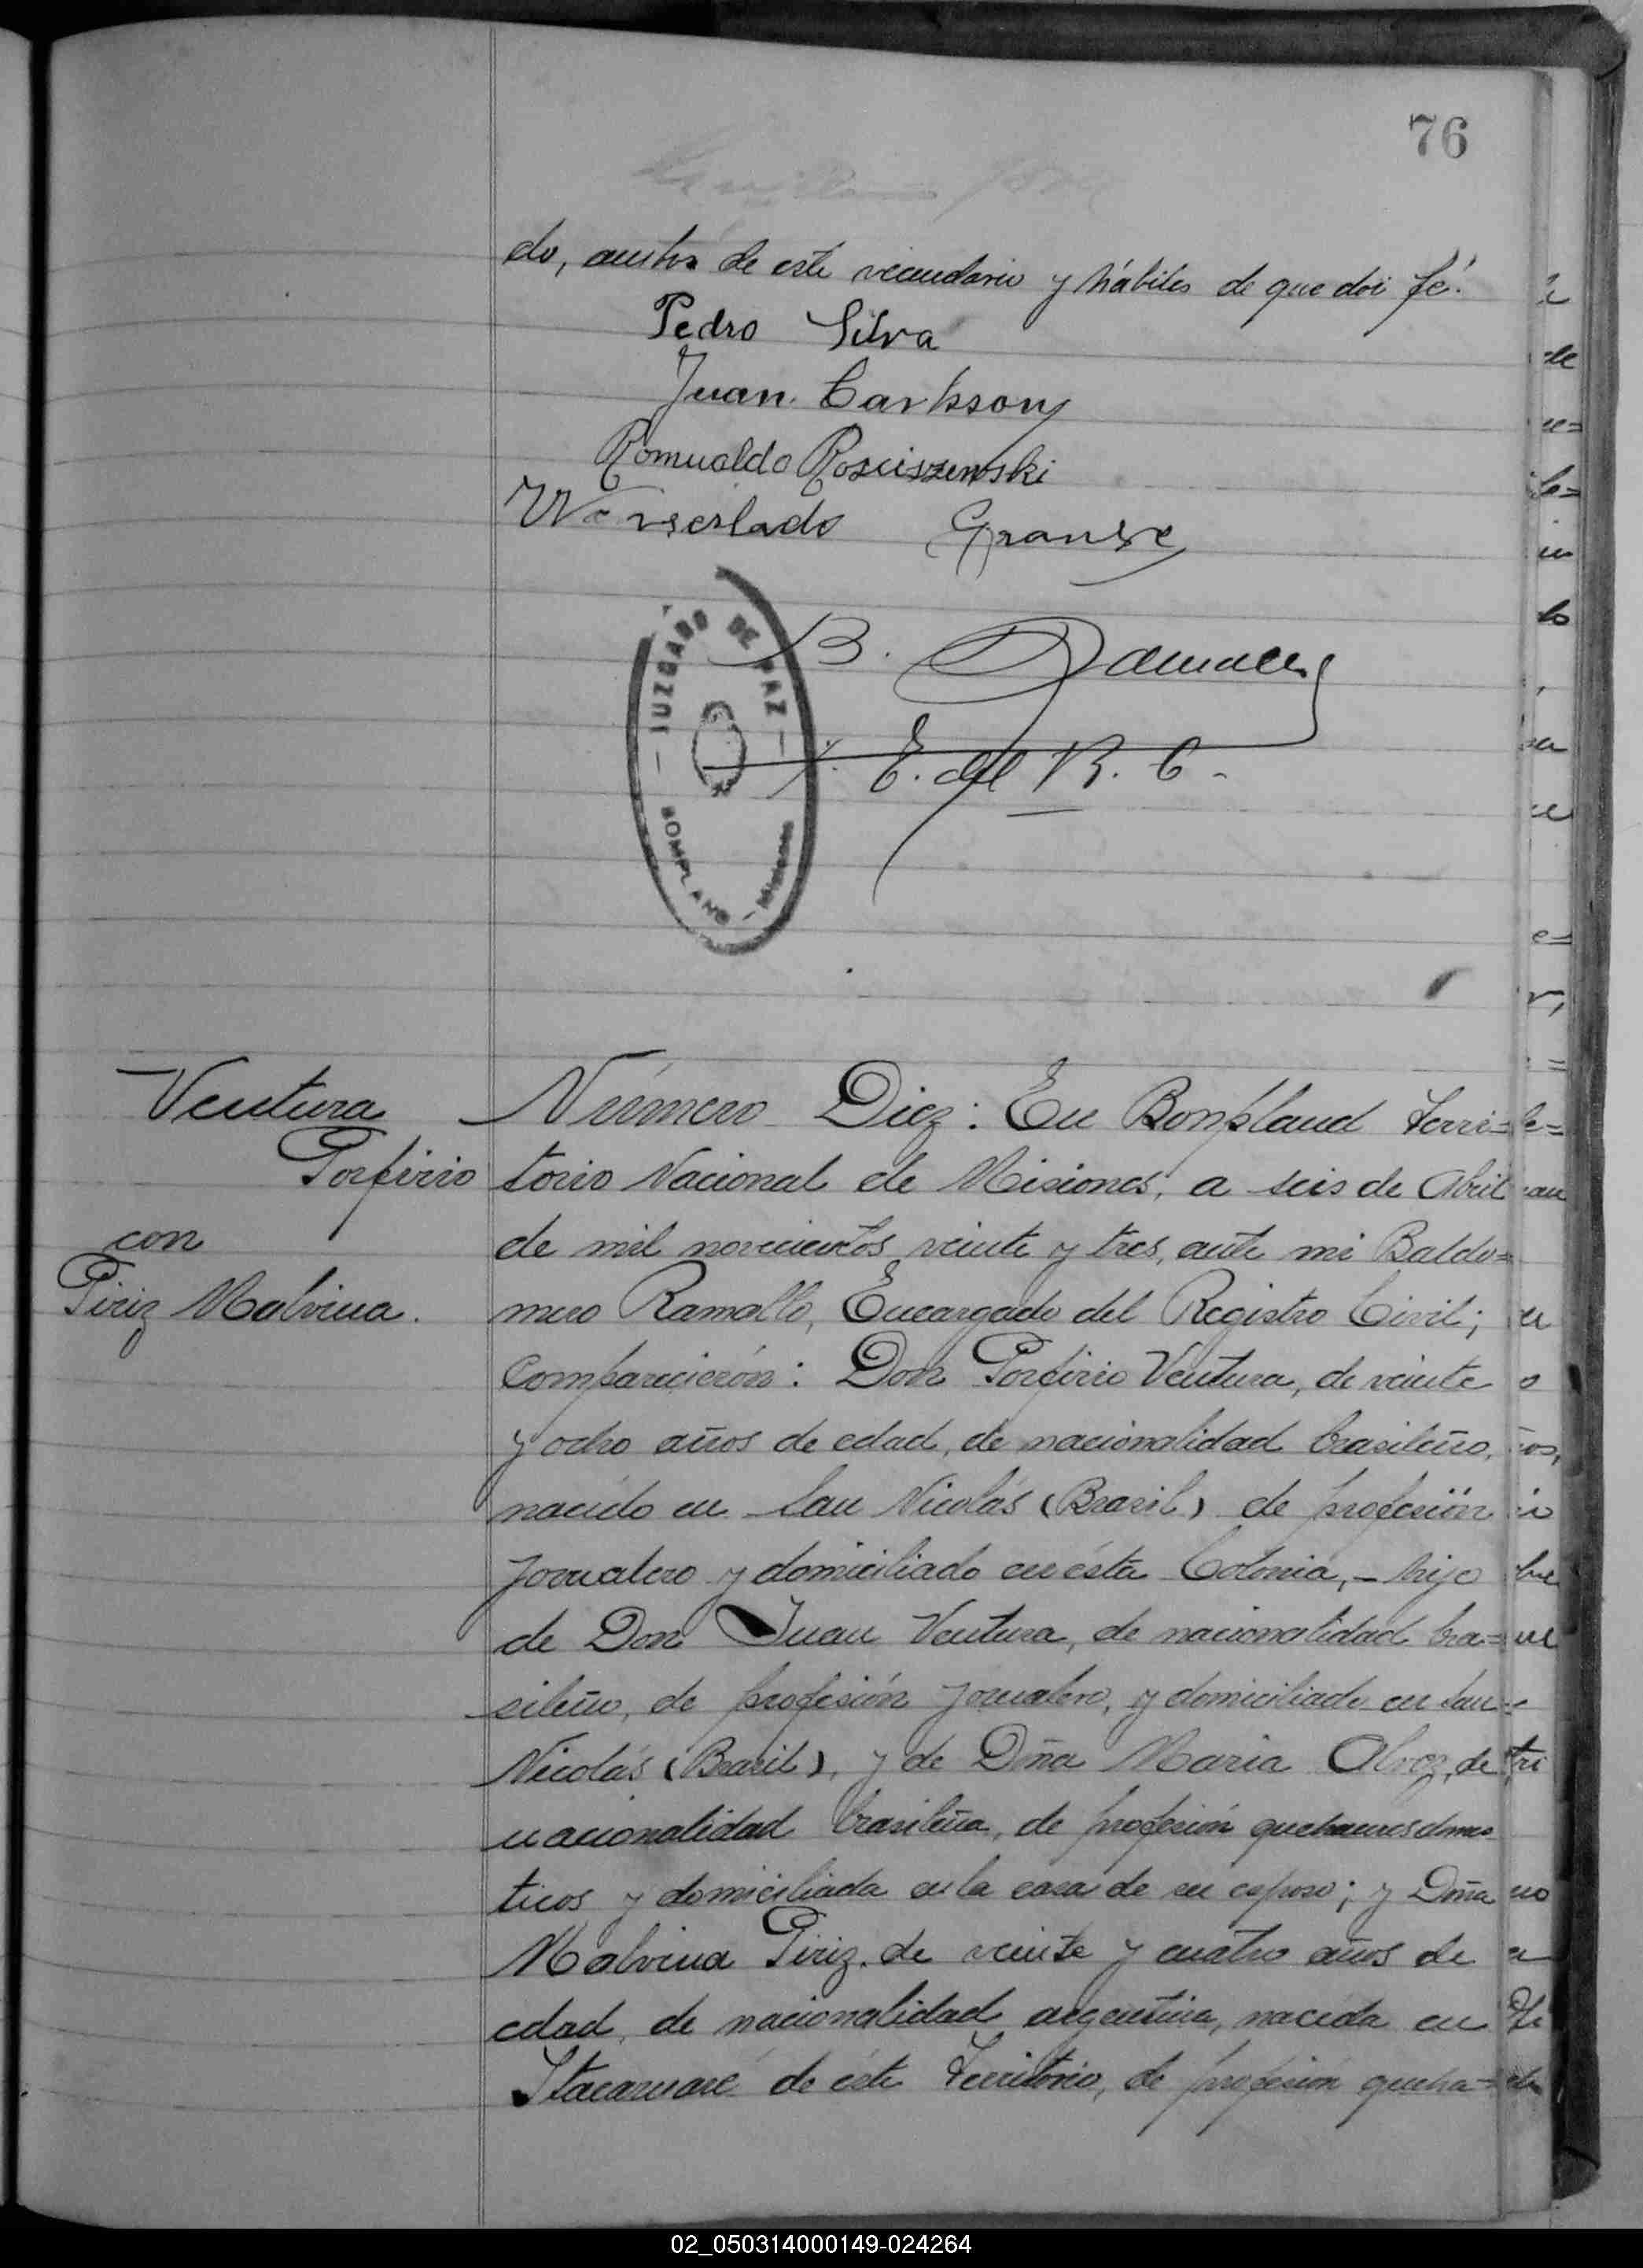 76
do, ambos de este vecindario y hábiles de que doi fé.
Pedro Silva
Juan Carlsson
Romualdo Rosciszewski
Wenseslado
B. Ramallo
E. del R. C.
JUZGADO DE PAZ
BOMPLAND - Misiones
Ventura
Porfirio
con
Piriz Malvina.
Número Diez: En Bonpland Terri=
torio Nacional de Misiones, a seis de Abril
de mil novecientos veinte y tres, ante mi Baldo=
mero Ramallo, Encargado del Registro Civil;
Comparecieron: Don Porfirio Ventura, de veinte
y ocho años de edad, de nacionalidad brasileño,
nacido en San Nicolás (Brasil) de profesión
jornalero y domiciliado en ésta Colonia, - hijo
de Don Juan Ventura, de nacionalidad bra=
sileño, de profesión jornalero, y domiciliado en San
Nicolás (Brasil), y de Dña Maria Alvez, de
nacionalidad brasileña, de profesión quehaceres domes
ticos y domiciliada en la casa de su esposo; y Dña
Malvina Piriz, de veinte y cuatro años de
edad, de nacionalidad argentina, nacida en
Itacaruaré de éste Territorio, de profesión queha=
02_050314000149-024264